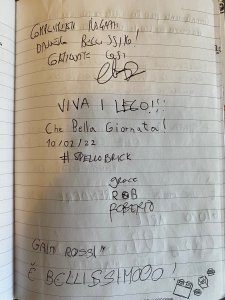 COMPLIMENTI RAGAZZI
DAVVERO BELLISSIMO!
CONTINUATE COSÌ
VIVA I LEGO!!!
Che Bella Giornata!
10/02/22
#SPELLOBRICK
grace
ROB
ROBERTO
GRUPPO ROSSI
È BELLISSIMOOO!